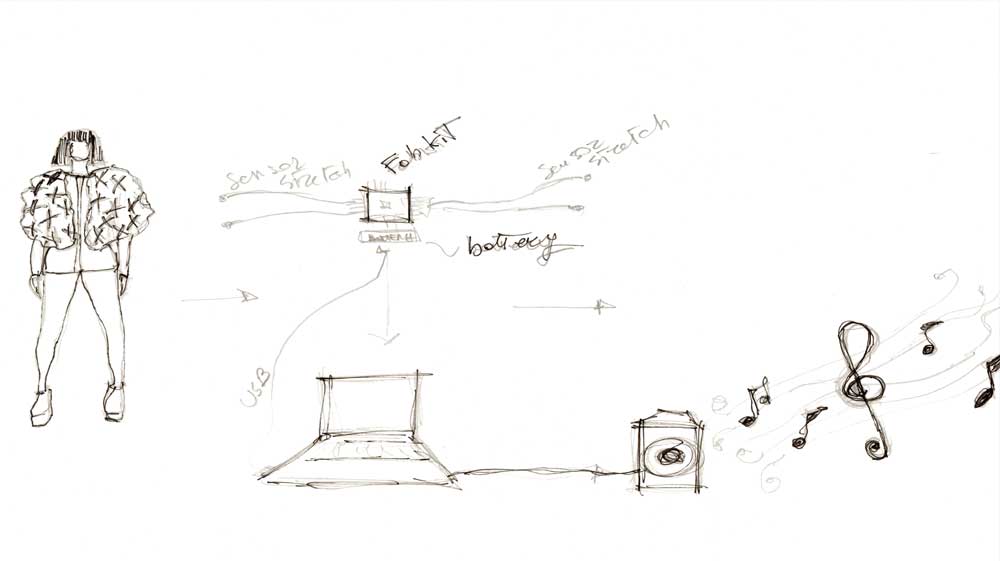 Sensor
stretch
Fabkit
Sensor
stretch
battery
USB